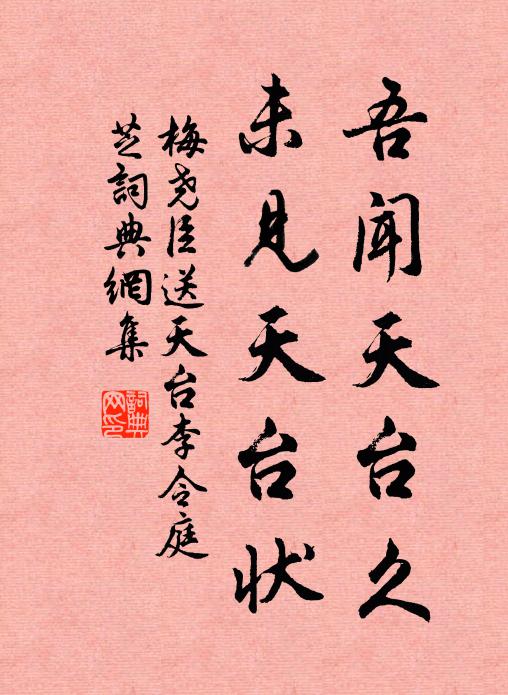 吾闻天台久
未见天台状
梅尧臣送天台李令庭
芝詞典網集
詞典
网印